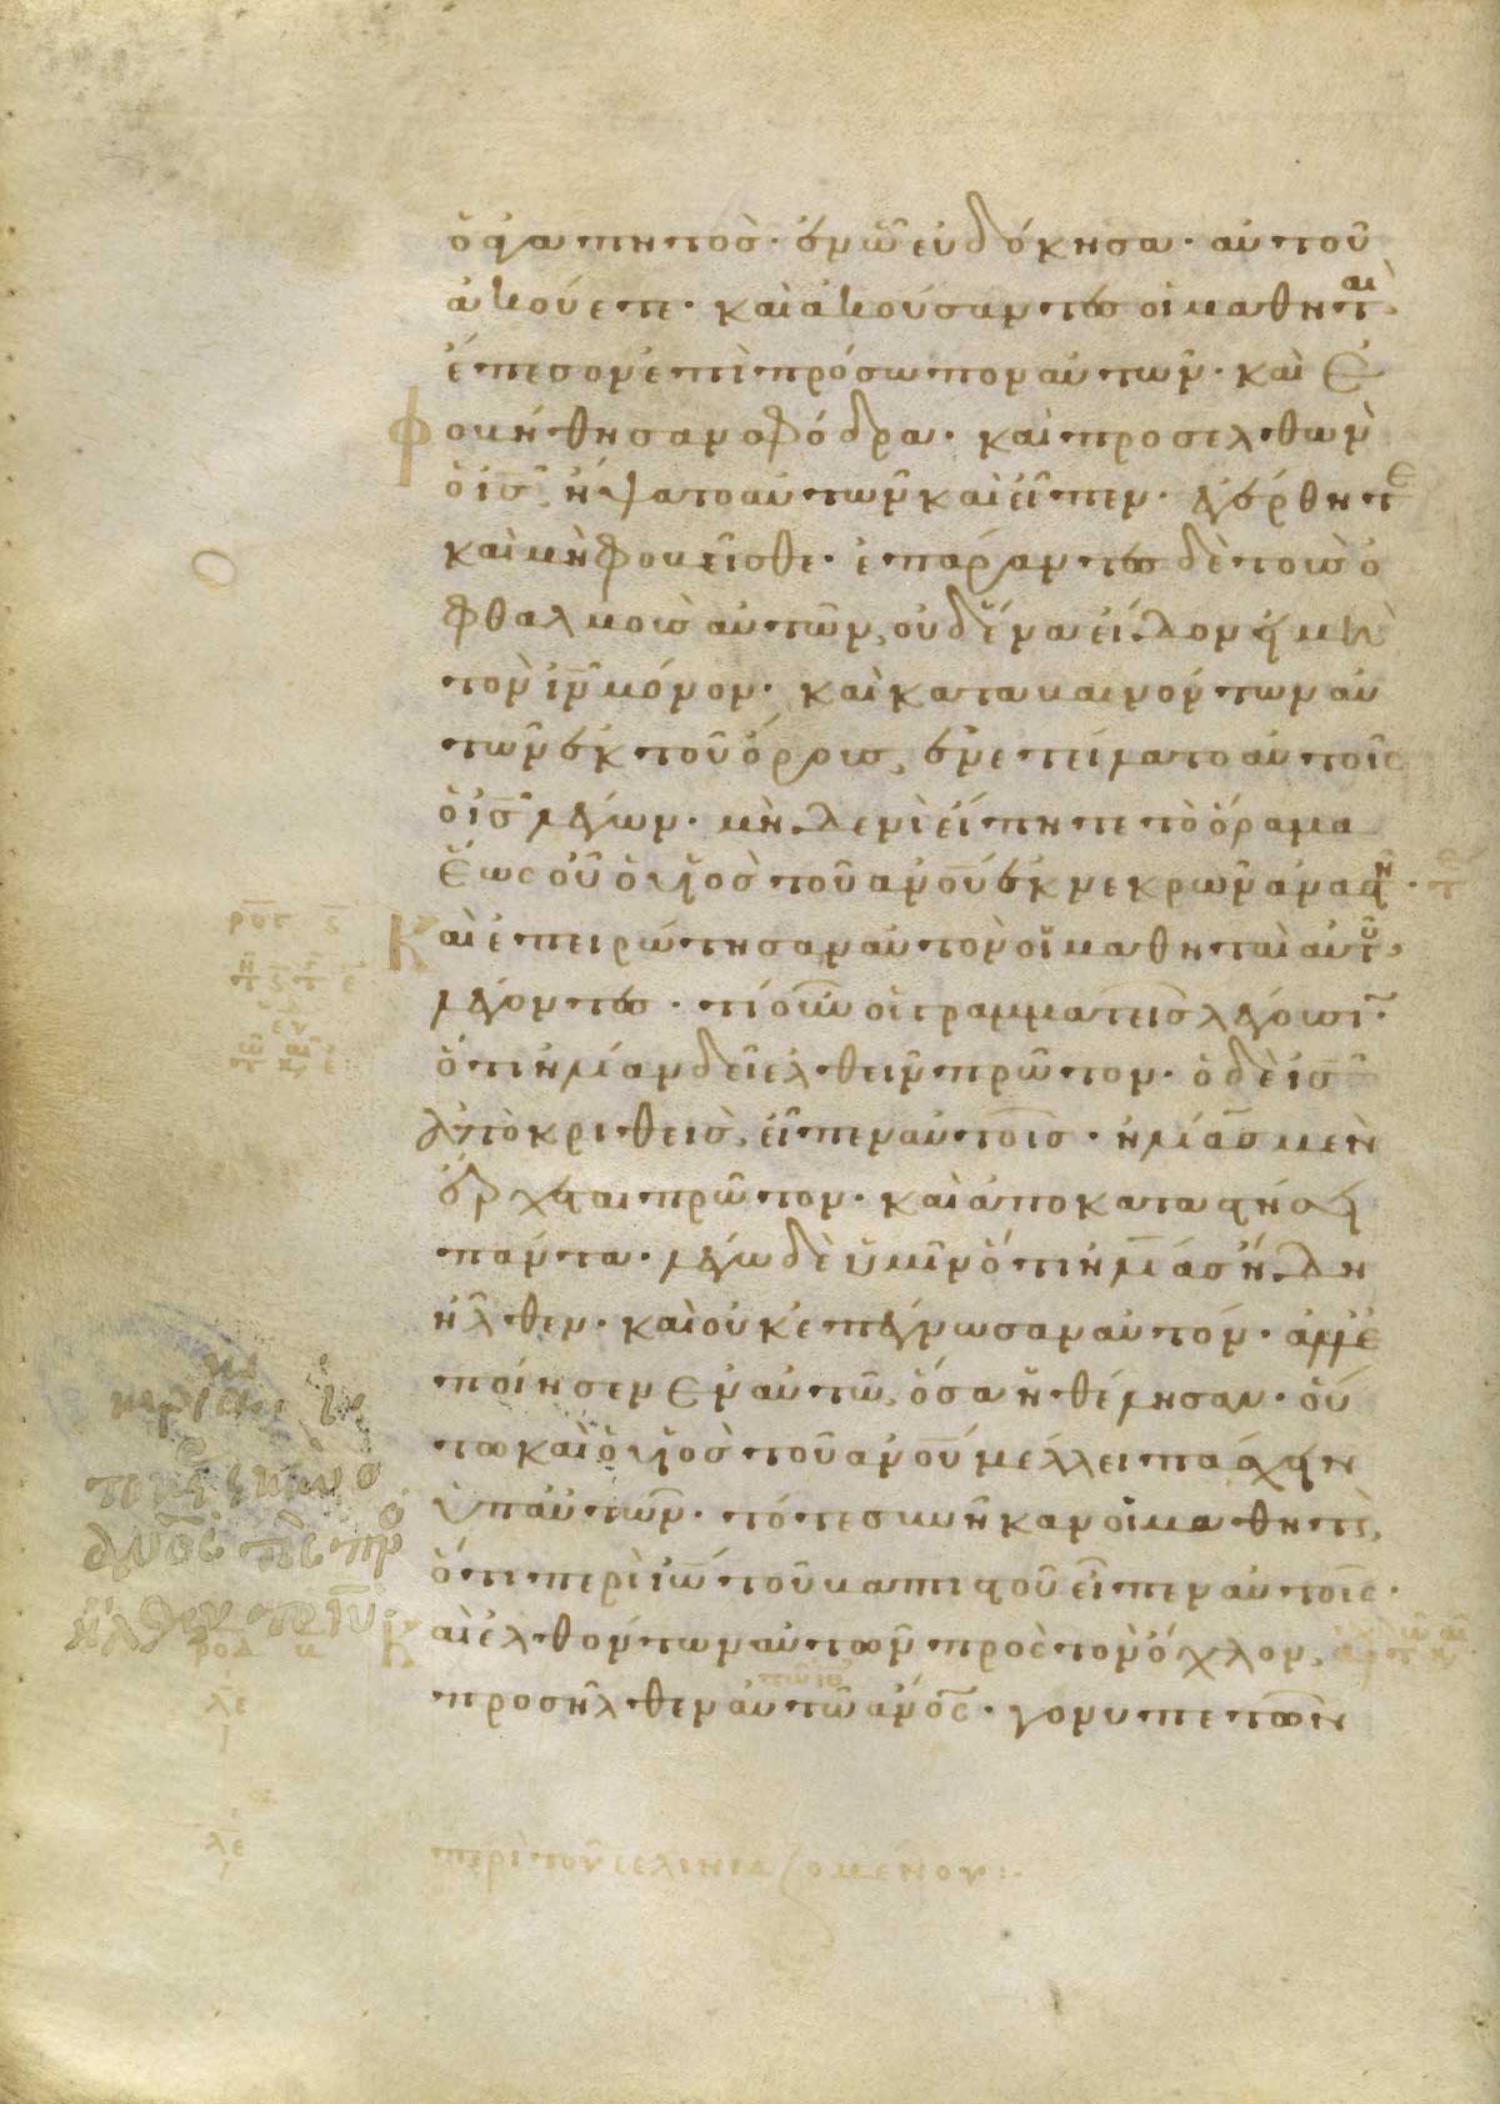 ὁ ἀγαπητὸσ· ἐν ᾧ εὐδόκησα· αὐτοῦ
ἀκούετε· καὶ ἀκούσαντες οἱ μαθηταὶ,
ἔπεσον ἐπὶ πρόσωπον αὐτῶν· καὶ ἐ
φοβήθησαν σφόδρα· καὶ προσελθὼν
ὁ ις, ἥψατο αὐτῶν καὶ εἶπεν· ἐγέρθητε
καὶ μὴ φοβεῖσθε· ἐπάραντες δὲ τοὺσ ὀ
φθαλμοὺσ αὐτῶν, οὐδένα εἶδον εἰ μὴ
τὸν ιν μόνον· καὶ καταβαινόντων αὐ
τῶν ἐκ τοῦ ὄρουσ, ἐνετείλατο αὐτοῖς
ὁ ισ λέγων· μὴδενὶ εἴπητε τὸ ὅραμα
ἕως οὗ ὁ υἱὸσ τοῦ ανου ἐκ νεκρῶν ἀναστῆ·
Καὶ ἐπειρώτησαν αὐτὸν οἱ μαθηταὶ αὐτοῦ,
λέγοντες· τί οὖν οἱ γραμματεῖσ λέγουσιν·
ὅτι ἠλίαν δεῖ ἐλθεῖν πρῶτον· ὁ δὲ ισ
ἀποκριθεὶσ, εἶπεν αὐτοῖσ· ἠλίασ μὲν
ἔρχεται πρῶτον· καὶ ἀποκαταστήσει
πάντα· λέγω δὲ ὑμῖν ὅτι ἠλίασ ἤδη
ἦλθεν· καὶ οὐκ ἐπέγνωσαν αὐτόν· ἀλλ' ἐ
ποίησεν ἐν αὐτῶ, ὅσα ἠθέλησαν· οὕ
τω καὶ ὁ υἱὸσ τοῦ ανου μέλλει πάσχειν
ὑπ' αὐτῶν· τότε συνῆκαν οἱ μαθηταὶ,
ὅτι περὶ ιω τοῦ βαπτιστοῦ εἶπεν αὐτοῖς·
Καὶ ἐλθόντων αὐτῶν πρὸς τὸν ὄχλον,
προσῆλθεν αὐτῶ ανος· γονυπετῶν
περὶ τοῦ σεληνιαζομένου:-